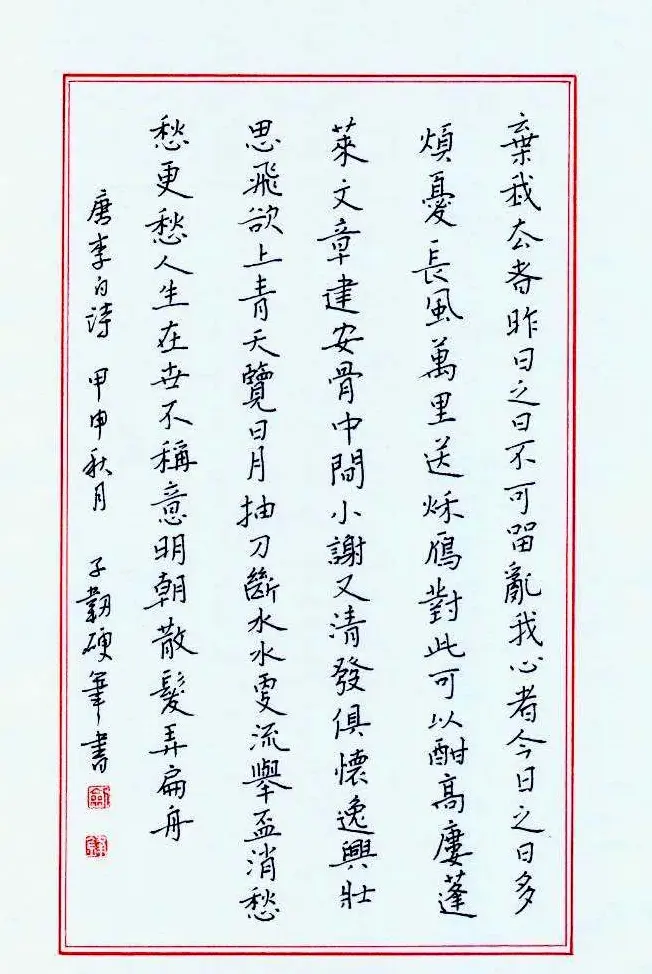 棄我去者昨日之日不可留亂我心者今日之日多
煩憂長風萬里送秌鴈對此可以酣高廔蓬
萊文章建安骨中間小謝又清發俱懷逸興壯
思飛欲上青天覽日月抽刀斷水水更流舉盃消愁
愁更愁人生在世不稱意明朝散髮弄扁舟
唐李白詩 甲申秋月 子龏硬筆書